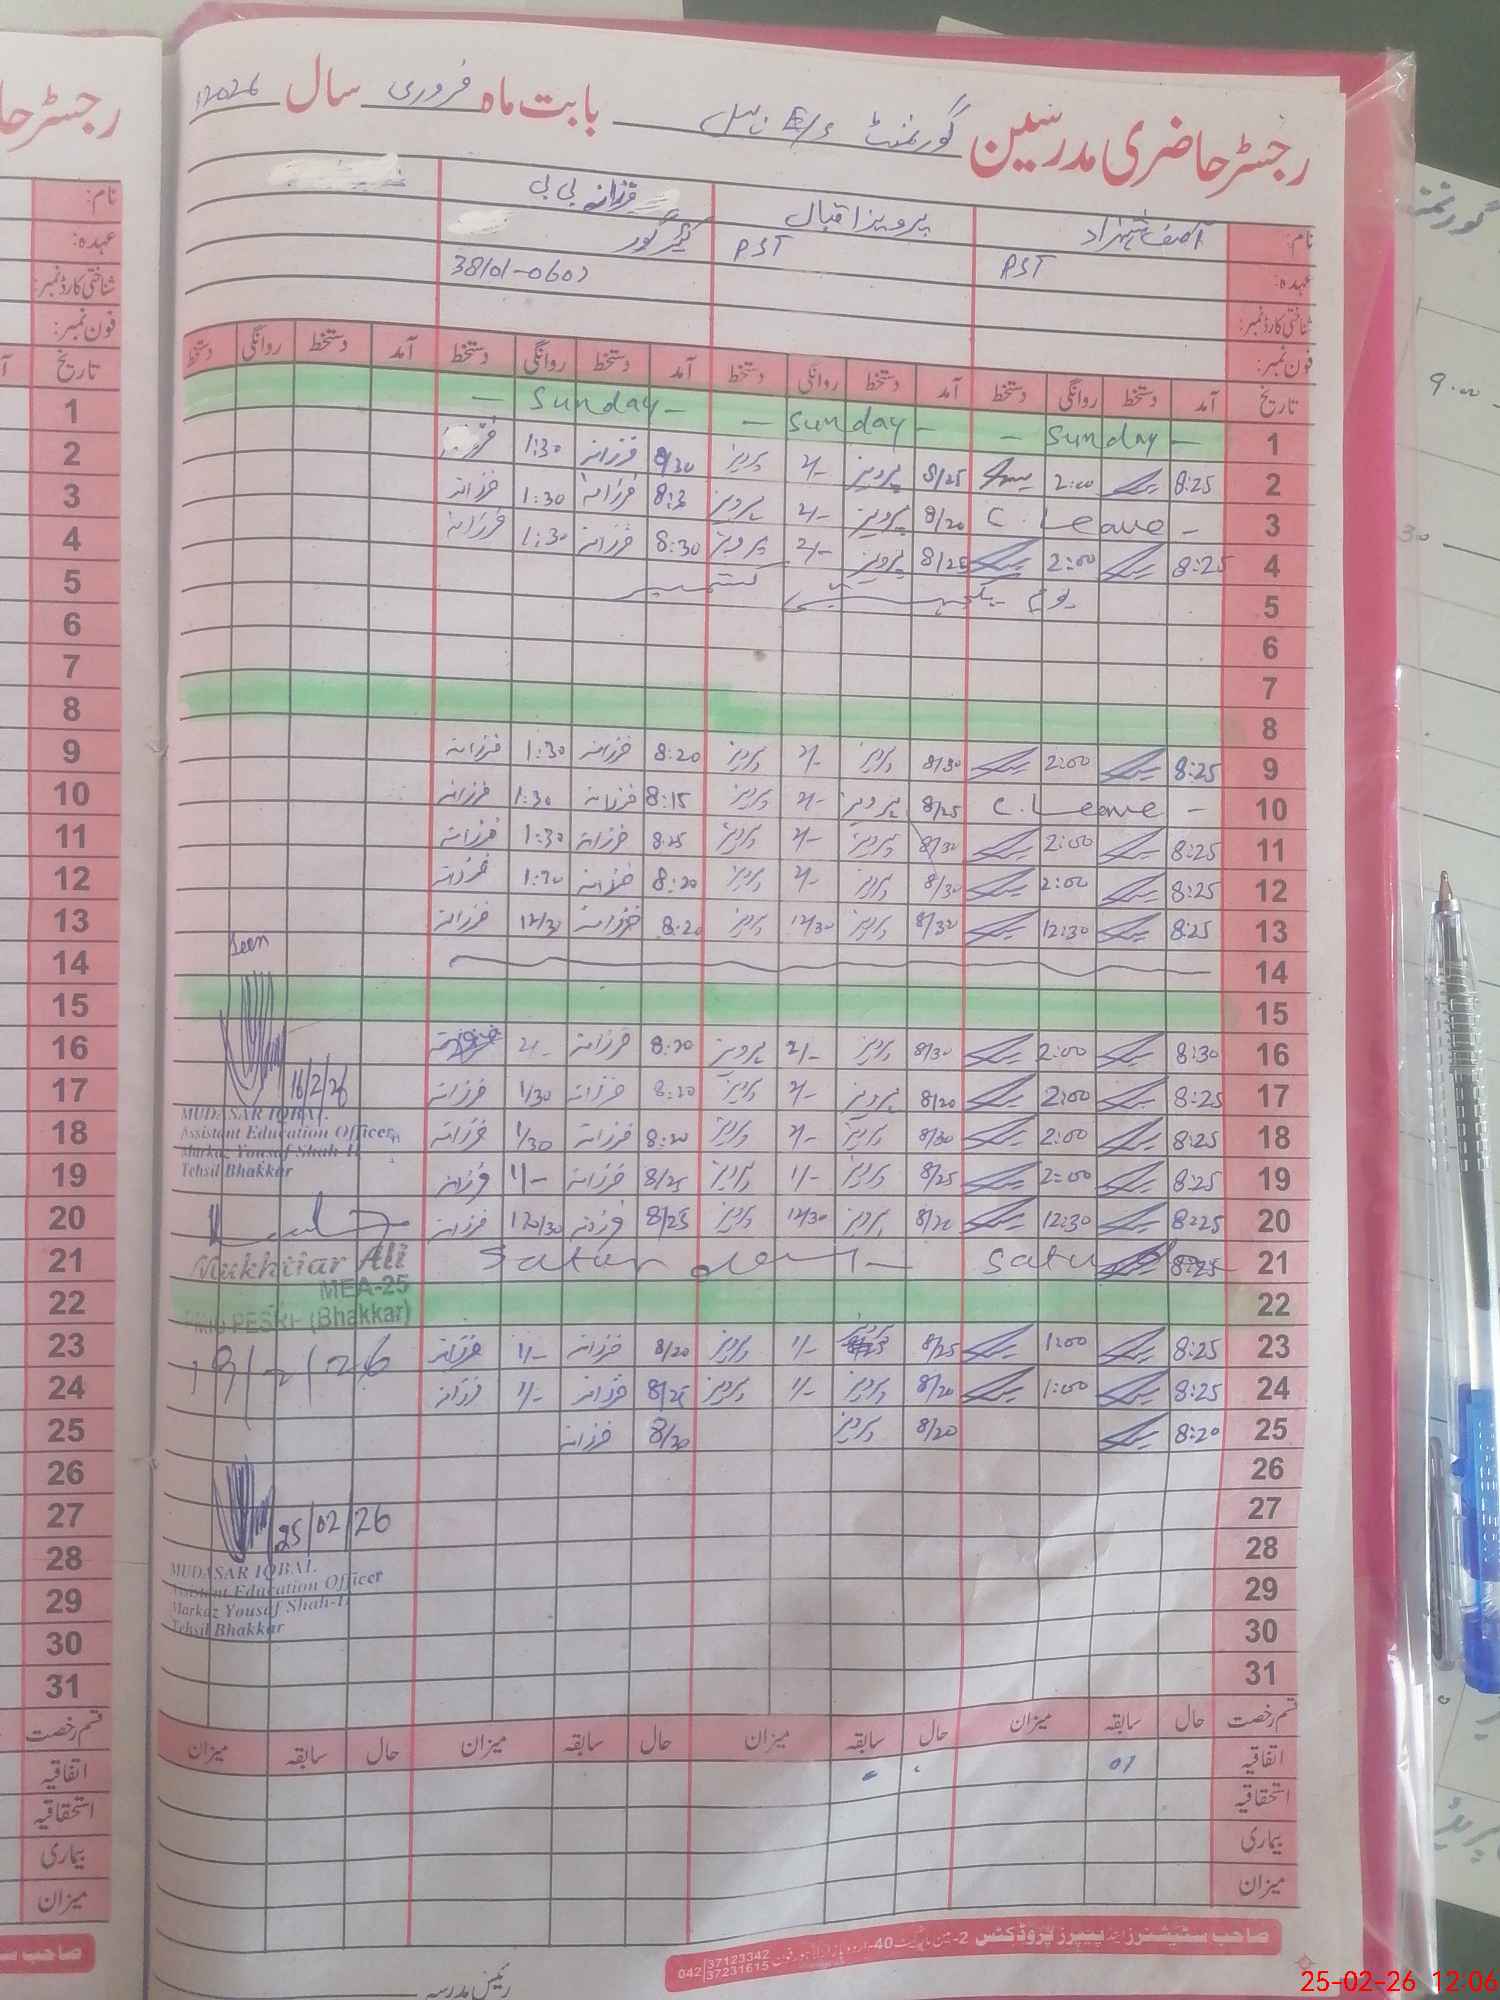 رجسٹر حاضری مدرسین گورنمنٹ E/S بابت ماہ فروری سال 2026
نام: آصف شہزاد پرویز اقبال فرزانہ بی بی
عہدہ: PST PST کیئر گور
شناختی کارڈ نمبر: 38101-0607
فون نمبر:
تاریخ آمد دستخط روانگی دستخط آمد دستخط روانگی دستخط آمد دستخط روانگی دستخط آمد دستخط روانگی دستخط
1 - Sunday - - Sunday - - Sunday -
2 8:25 2:00 8/25 پرویز 2/- پرویز 8/30 فرزانہ 1:30 فرزانہ
3 C. Leave - 8/20 پرویز 2/- پرویز 8:3 فرزانہ 1:30 فرزانہ
4 8:25 2:00 8/25 پرویز 2/- پرویز 8:30 فرزانہ 1:30 فرزانہ
5 یوم یکجہتی کشمیر
6
7
8
9 8:25 2:00 8/30 پرویز 2/- پرویز 8:20 فرزانہ 1:30 فرزانہ
10 C. Leave - 8/25 پرویز 2/- پرویز 8:15 فرزانہ 1:30 فرزانہ
11 8:25 2:00 8/30 پرویز 2/- پرویز 8:25 فرزانہ 1:30 فرزانہ
12 8:25 2:00 8/30 پرویز 2/- پرویز 8:20 فرزانہ 1:30 فرزانہ
13 8:25 12:30 8/30 پرویز 12/30 پرویز 8:20 فرزانہ 12/30 فرزانہ
Seen
14
15
16 8:30 2:00 8/30 پرویز 2/- پرویز 8:20 فرزانہ 2/-
16/2/26
17 8:25 2:00 8/20 پرویز 2/- پرویز 8:20 فرزانہ 1/30 فرزانہ
MUDASAR IQBAL
18 8:25 2:00 8/30 پرویز 2/- پرویز 8:20 فرزانہ 1/30 فرزانہ
Assistant Education Officer
Markaz Yousaf Shah-II
Tehsil Bhakkar
19 8:25 2:00 8/25 پرویز 1/- پرویز 8/25 فرزانہ 1/- فرزانہ
20 8:25 12:30 8/20 پرویز 12/30 پرویز 8/25 فرزانہ 120/30 فرزانہ
21 8:25 Satu Satur
Mukhtiar Ali
MEA-25
22
PMIU PESRP (Bhakkar)
23 8:25 1:00 8/25 پرویز 1/- پرویز 8/20 فرزانہ 1/- فرزانہ
19/2/26
24 8:25 1:00 8/20 پرویز 1/- پرویز 8/25 فرزانہ 1/- فرزانہ
25 8:20 8/20 پرویز 8/20 فرزانہ
26
27
25/02/26
28
MUDASAR IQBAL
Assistant Education Officer
29
Markaz Yousaf Shah-II
Tehsil Bhakkar
30
31
قسم رخصت حال سابقہ میزان حال سابقہ میزان حال سابقہ میزان حال سابقہ میزان
اتفاقیہ 01
استحقاقیہ
بیماری
میزان
صاحب سٹیشنرز اینڈ پیپرز پروڈکٹس 2-مین مارکیٹ 40-اردو بازار لاہور فون 042 37123342 37231615
رئیس مدرسہ
25-02-26 12:06